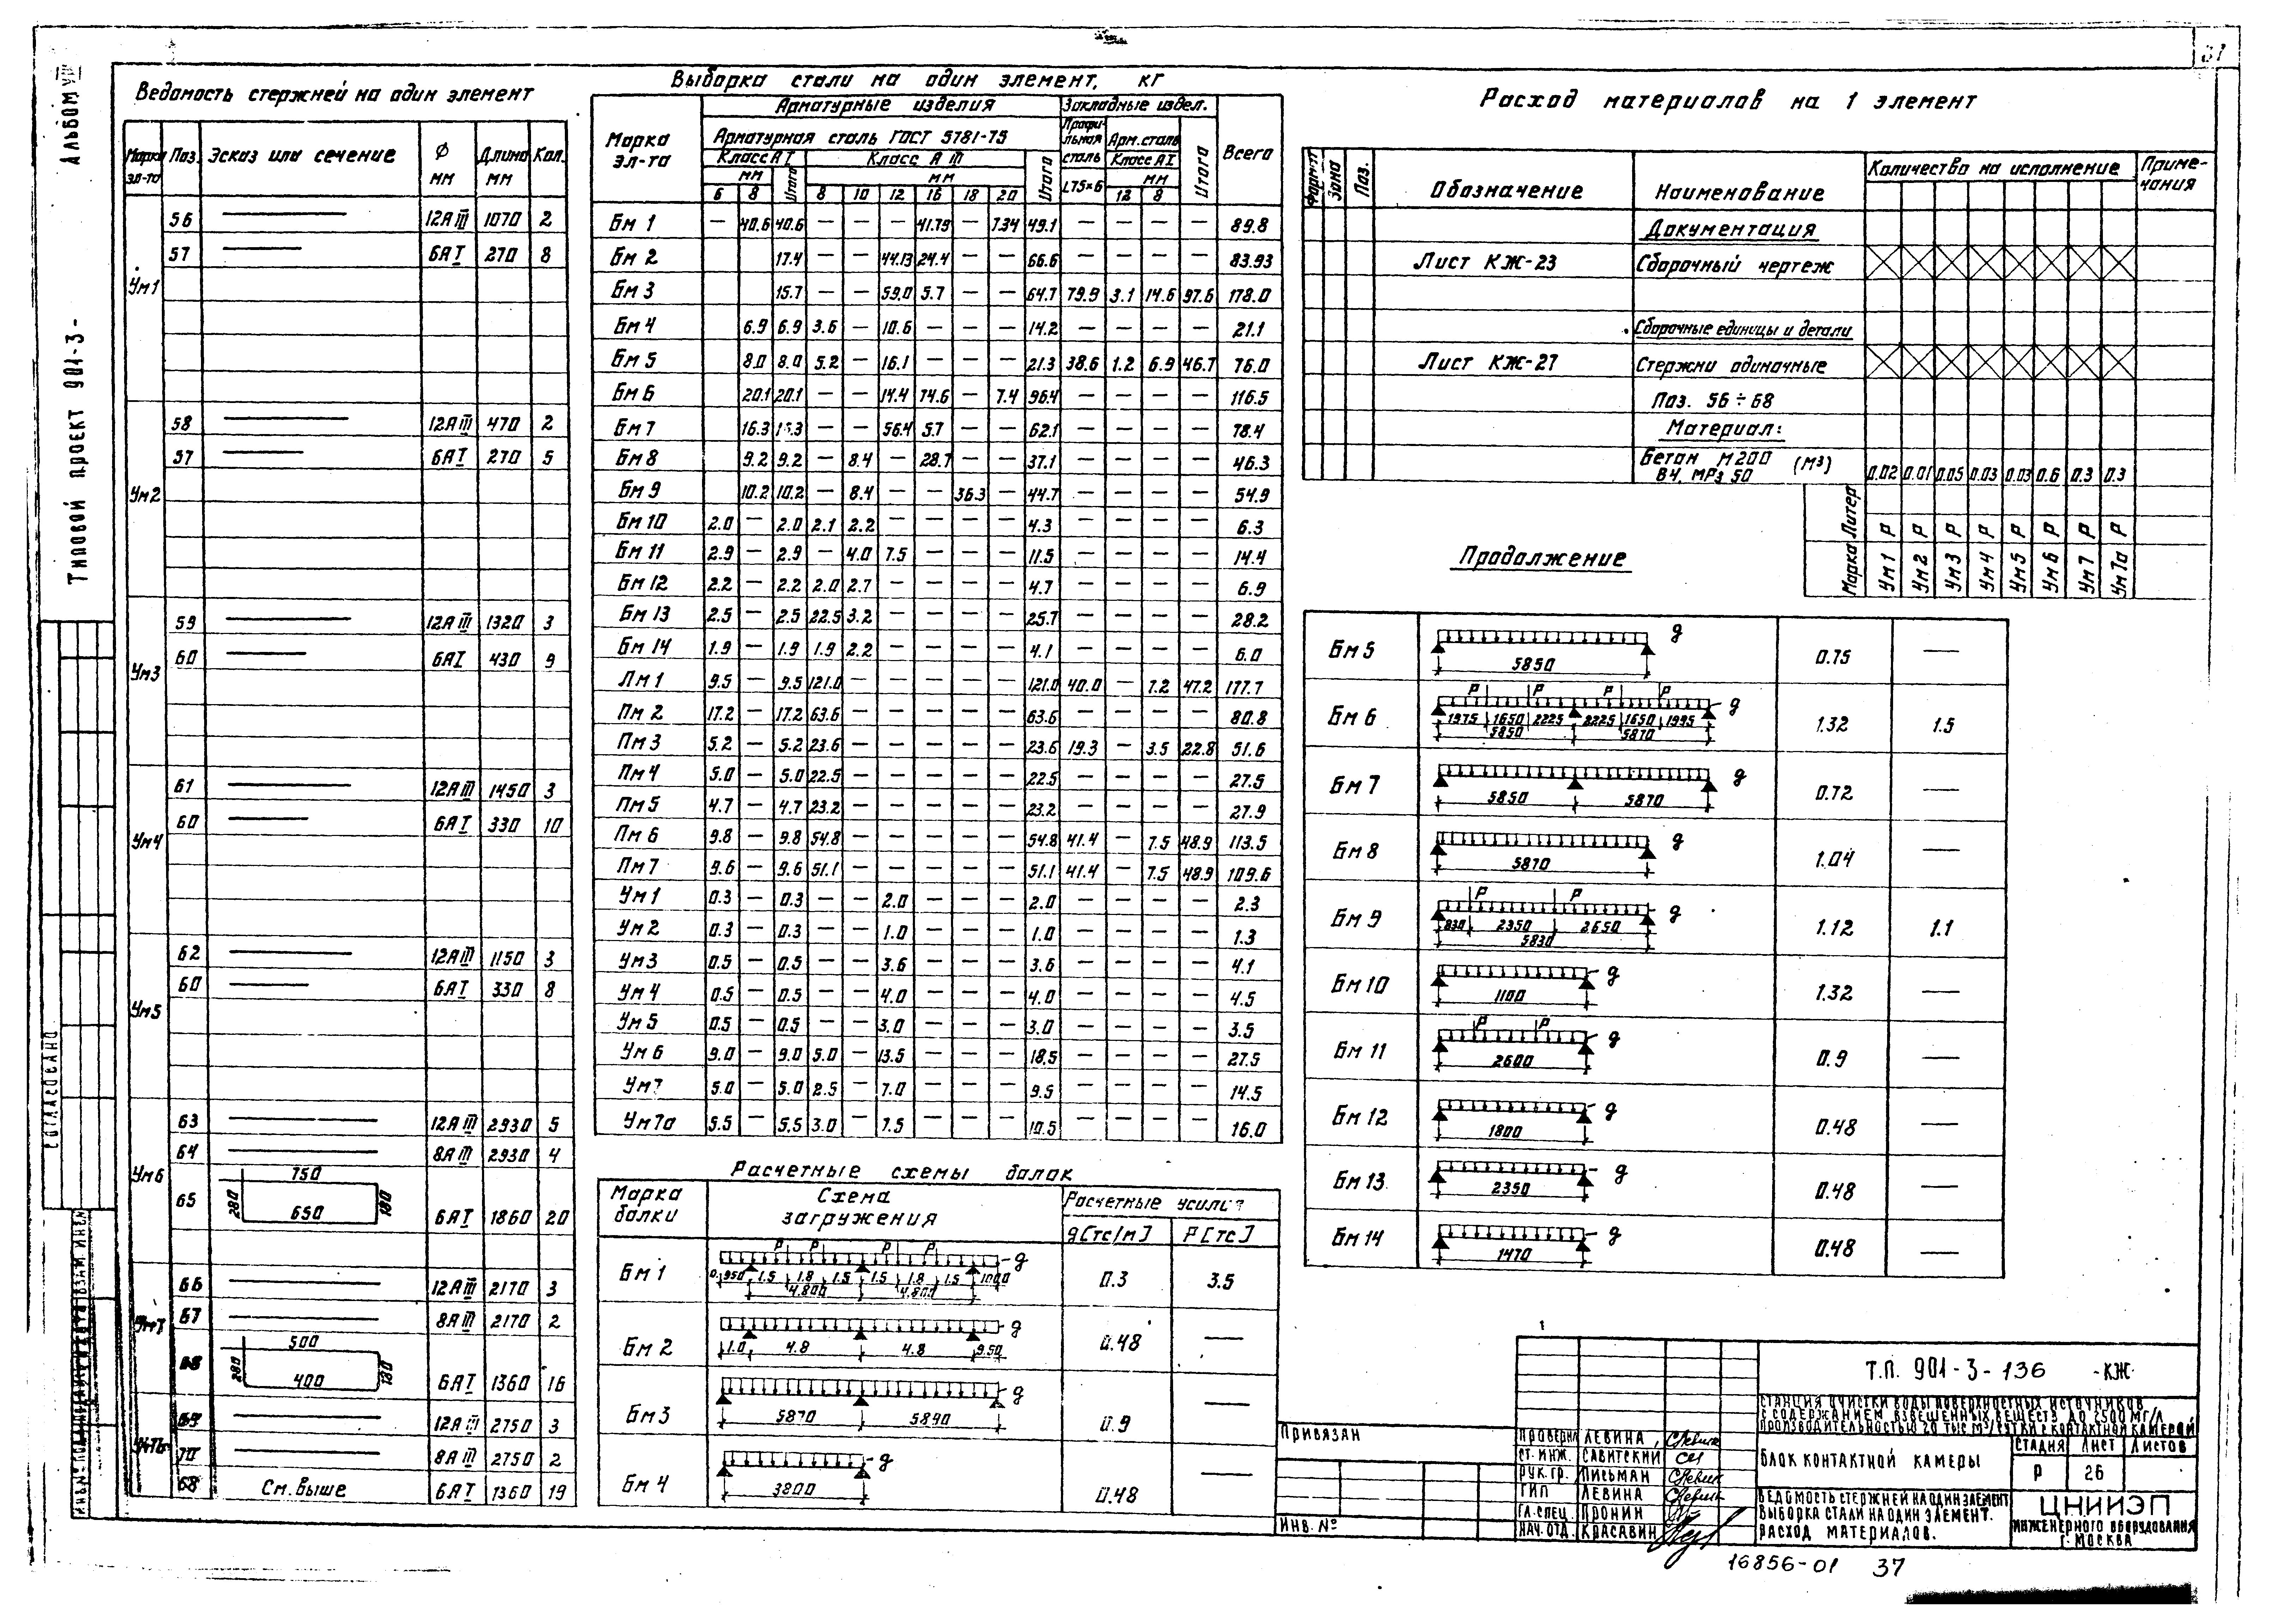 37
Альбом VIII
Типовой проект 901-3-
СОГЛАСОВАНО
Ведомость стержней на один элемент
Марка эл-та | Поз. | Эскиз или сечение | Ф мм | Длина мм | Кол.
Ум1 | 56 | 12А III | 1070 | 2
57 | 6А I | 270 | 8
Ум2 | 58 | 12А III | 470 | 2
57 | 6А I | 270 | 5
Ум3 | 59 | 12А III | 1320 | 3
60 | 6А I | 430 | 9
Ум4 | 61 | 12А III | 1450 | 3
60 | 6А I | 330 | 10
Ум5 | 62 | 12А III | 1150 | 3
60 | 6А I | 330 | 8
Ум6 | 63 | 12А III | 2930 | 5
64 | 8А III | 2930 | 4
65 | 750 280 650 180 | 6А I | 1860 | 20
Ум7 | 66 | 12А III | 2170 | 3
67 | 8А III | 2170 | 2
68 | 500 280 400 180 | 6А I | 1360 | 16
69 | 12А III | 2750 | 3
70 | 8А III | 2750 | 2
68 | См. выше | 6А I | 1360 | 19
Выборка стали на один элемент, кг
Марка эл-та | Арматурные изделия | Закладные издел. | Всего
Арматурная сталь ГОСТ 5781-75 | Итого | Профильная сталь | Арм. сталь | Итого
Класс А I | Класс А III | Класс А I
мм | Итого | мм | мм
6 | 8 | 8 | 10 | 12 | 16 | 18 | 20 | L75×6 | 12 | 8
Бм 1 | — | 40.6 | 40.6 | — | — | — | 41.79 | — | 7.34 | 49.1 | — | — | — | — | 89.8
Бм 2 | 17.4 | — | — | 44.13 | 24.4 | — | — | 66.6 | — | — | — | — | 83.93
Бм 3 | 15.7 | — | — | 59.0 | 5.7 | — | — | 64.7 | 79.9 | 3.1 | 14.6 | 97.6 | 178.0
Бм 4 | 6.9 | 6.9 | 3.6 | — | 10.6 | — | — | — | 14.2 | — | — | — | — | 21.1
Бм 5 | 8.0 | 8.0 | 5.2 | — | 16.1 | — | — | — | 21.3 | 38.6 | 1.2 | 6.9 | 46.7 | 76.0
Бм 6 | 20.1 | 20.1 | — | — | 14.4 | 74.6 | — | 7.4 | 96.4 | — | — | — | — | 116.5
Бм 7 | 16.3 | 16.3 | — | — | 56.4 | 5.7 | — | — | 62.1 | — | — | — | — | 78.4
Бм 8 | 9.2 | 9.2 | — | 8.4 | — | 28.7 | — | — | 37.1 | — | — | — | — | 46.3
Бм 9 | 10.2 | 10.2 | — | 8.4 | — | — | 36.3 | — | 44.7 | — | — | — | — | 54.9
Бм 10 | 2.0 | — | 2.0 | 2.1 | 2.2 | — | — | — | — | 4.3 | — | — | — | — | 6.3
Бм 11 | 2.9 | — | 2.9 | — | 4.0 | 7.5 | — | — | — | 11.5 | — | — | — | — | 14.4
Бм 12 | 2.2 | — | 2.2 | 2.0 | 2.7 | — | — | — | — | 4.7 | — | — | — | — | 6.9
Бм 13 | 2.5 | — | 2.5 | 22.5 | 3.2 | — | — | — | — | 25.7 | — | — | — | — | 28.2
Бм 14 | 1.9 | — | 1.9 | 1.9 | 2.2 | — | — | — | — | 4.1 | — | — | — | — | 6.0
Пм 1 | 9.5 | — | 9.5 | 121.0 | — | — | — | — | — | 121.0 | 40.0 | — | 7.2 | 47.2 | 177.7
Пм 2 | 17.2 | — | 17.2 | 63.6 | — | — | — | — | — | 63.6 | — | — | — | — | 80.8
Пм 3 | 5.2 | — | 5.2 | 23.6 | — | — | — | — | — | 23.6 | 19.3 | — | 3.5 | 22.8 | 51.6
Пм 4 | 5.0 | — | 5.0 | 22.5 | — | — | — | — | — | 22.5 | — | — | — | — | 27.5
Пм 5 | 4.7 | — | 4.7 | 23.2 | — | — | — | — | — | 23.2 | — | — | — | — | 27.9
Пм 6 | 9.8 | — | 9.8 | 54.8 | — | — | — | — | — | 54.8 | 41.4 | — | 7.5 | 48.9 | 113.5
Пм 7 | 9.6 | — | 9.6 | 51.1 | — | — | — | — | — | 51.1 | 41.4 | — | 7.5 | 48.9 | 109.6
Ум 1 | 0.3 | — | 0.3 | — | — | 2.0 | — | — | — | 2.0 | — | — | — | — | 2.3
Ум 2 | 0.3 | — | 0.3 | — | — | 1.0 | — | — | — | 1.0 | — | — | — | — | 1.3
Ум 3 | 0.5 | — | 0.5 | — | — | 3.6 | — | — | — | 3.6 | — | — | — | — | 4.1
Ум 4 | 0.5 | — | 0.5 | — | — | 4.0 | — | — | — | 4.0 | — | — | — | — | 4.5
Ум 5 | 0.5 | — | 0.5 | — | — | 3.0 | — | — | — | 3.0 | — | — | — | — | 3.5
Ум 6 | 9.0 | — | 9.0 | 5.0 | — | 13.5 | — | — | — | 18.5 | — | — | — | — | 27.5
Ум 7 | 5.0 | — | 5.0 | 2.5 | — | 7.0 | — | — | — | 9.5 | — | — | — | — | 14.5
Ум 7а | 5.5 | — | 5.5 | 3.0 | — | 7.5 | — | — | — | 10.5 | — | — | — | — | 16.0
Расчетные схемы балок
Марка балки | Схема загружения | Расчетные усилия
g [тс/м] | Р [тс]
Бм 1 | Р Р Р Р g 0.950 1.5 1.8 1.5 1.5 1.8 1.5 1000 4.800 4.800 | 0.3 | 3.5
Бм 2 | g 1.0 4.8 4.8 950 | 0.48 | —
Бм 3 | g 5870 5890 | 0.9 | —
Бм 4 | g 3800 | 0.48 | —
Расход материалов на 1 элемент
Формат | Зона | Поз. | Обозначение | Наименование | Количество на исполнение | Примечания
Документация
Лист КЖ-23 | Сборочный чертеж
Сборочные единицы и детали
Лист КЖ-27 | Стержни одиночные
Поз. 56 ÷ 68
Материал:
Бетон М200 (м³)
В4, МРз 50 | 0.02 | 0.01 | 0.05 | 0.03 | 0.03 | 0.6 | 0.3 | 0.3
Литер | Р | Р | Р | Р | Р | Р | Р | Р
Марка | Ум 1 | Ум 2 | Ум 3 | Ум 4 | Ум 5 | Ум 6 | Ум 7 | Ум 7а
Продолжение
Бм 5 | g 5850 | 0.75 | —
Бм 6 | Р Р Р Р g 1975 1650 2225 2225 1650 1995 5850 5870 | 1.32 | 1.5
Бм 7 | g 5850 5870 | 0.72 | —
Бм 8 | g 5870 | 1.04 | —
Бм 9 | Р Р g 830 2350 2650 5830 | 1.12 | 1.1
Бм 10 | g 1100 | 1.32 | —
Бм 11 | Р Р g 2600 | 0.9 | —
Бм 12 | g 1800 | 0.48 | —
Бм 13 | g 2350 | 0.48 | —
Бм 14 | g 1470 | 0.48 | —
Привязан
ИНВ. №
Т.П. 901-3-136 -КЖ-
СТАНЦИЯ ОЧИСТКИ ВОДЫ ПОВЕРХНОСТНЫХ ИСТОЧНИКОВ
С СОДЕРЖАНИЕМ ВЗВЕШЕННЫХ ВЕЩЕСТВ ДО 2500 МГ/Л
ПРОИЗВОДИТЕЛЬНОСТЬЮ 20 ТЫС М³/СУТКИ С КОНТАКТНОЙ КАМЕРОЙ
ПРОВЕРИЛ ЛЕВИНА
СТ. ИНЖ. САВИТСКИЙ
РУК. ГР. ПИСЬМАН
ГИП ЛЕВИНА
ГЛ. СПЕЦ. ПРОНИН
НАЧ. ОТД. КРАСАВИН
БЛОК КОНТАКТНОЙ КАМЕРЫ
СТАДИЯ | ЛИСТ | ЛИСТОВ
Р | 26
ВЕДОМОСТЬ СТЕРЖНЕЙ НА ОДИН ЭЛЕМЕНТ
ВЫБОРКА СТАЛИ НА ОДИН ЭЛЕМЕНТ.
РАСХОД МАТЕРИАЛОВ.
ЦНИИЭП
ИНЖЕНЕРНОГО ОБОРУДОВАНИЯ
Г. МОСКВА
16856-01 37